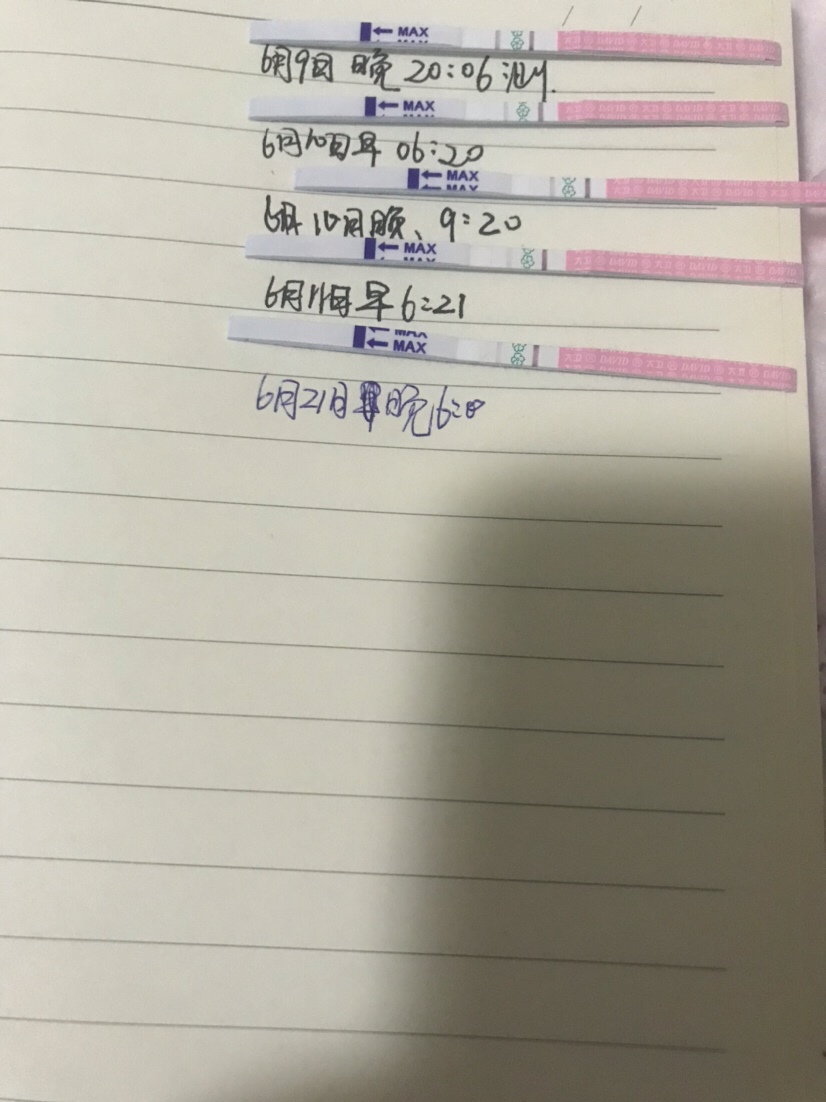 MAX
6月9日 晚 20:06
MAX
6月10日早 06:20
MAX
MAX
6月10日晚、9:20
MAX
6月11日早6:21
MAX
MAX
6月21日 晚6:0